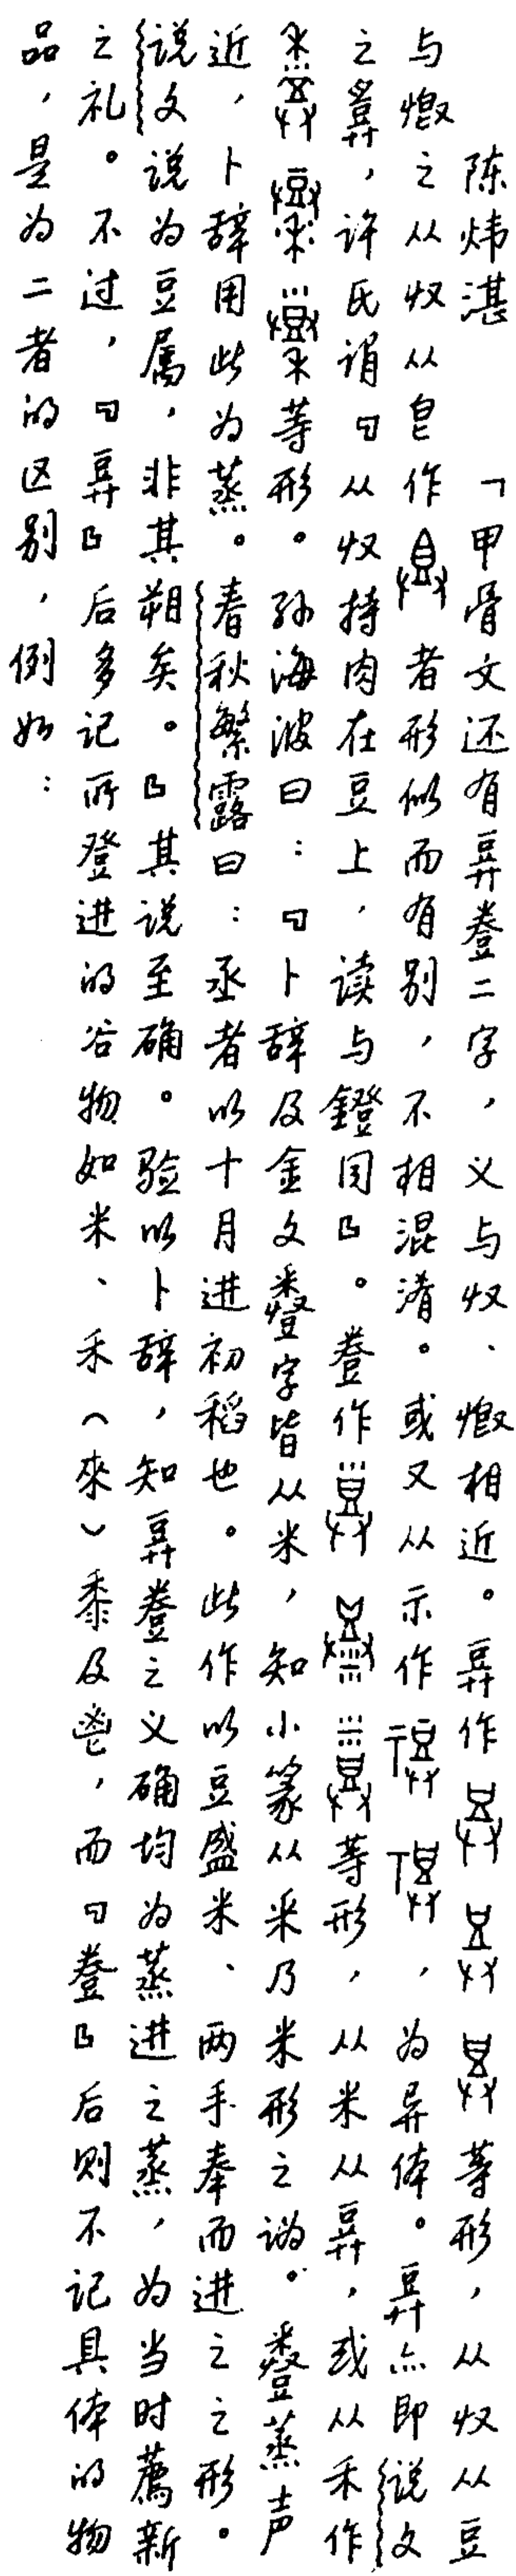 陈炜湛 「甲骨文还有𢍪𢍧二字，义与𠬞、㮚相近。𢍪作等形，从𠬞从豆
与之从𠬞从皀作者形似而有别，不相混淆。或又从示作，为异体。𢍪亦即说文
之，许氏谓『从𠬞持肉在豆上，读与鐙同』。作等形，从米从𢍪，或从禾作
等形。孙海波曰：『卜辞及金文字皆从米，知小篆从釆乃米形之讹。蒸声
近，卜辞用此为蒸。春秋繁露曰：烝者以十月进初稻也。此作以豆盛米、两手奉而进之之形。
说文说为豆属，非其朔矣。』其说至确。验以卜辞，知𢍪之义确均为蒸进之蒸，为当时薦新
之礼。不过，『𢍪』后多记所登进的谷物如米、禾（來）黍及鬯，而『』后则不记具体的物
品，是为二者的区别，例如：